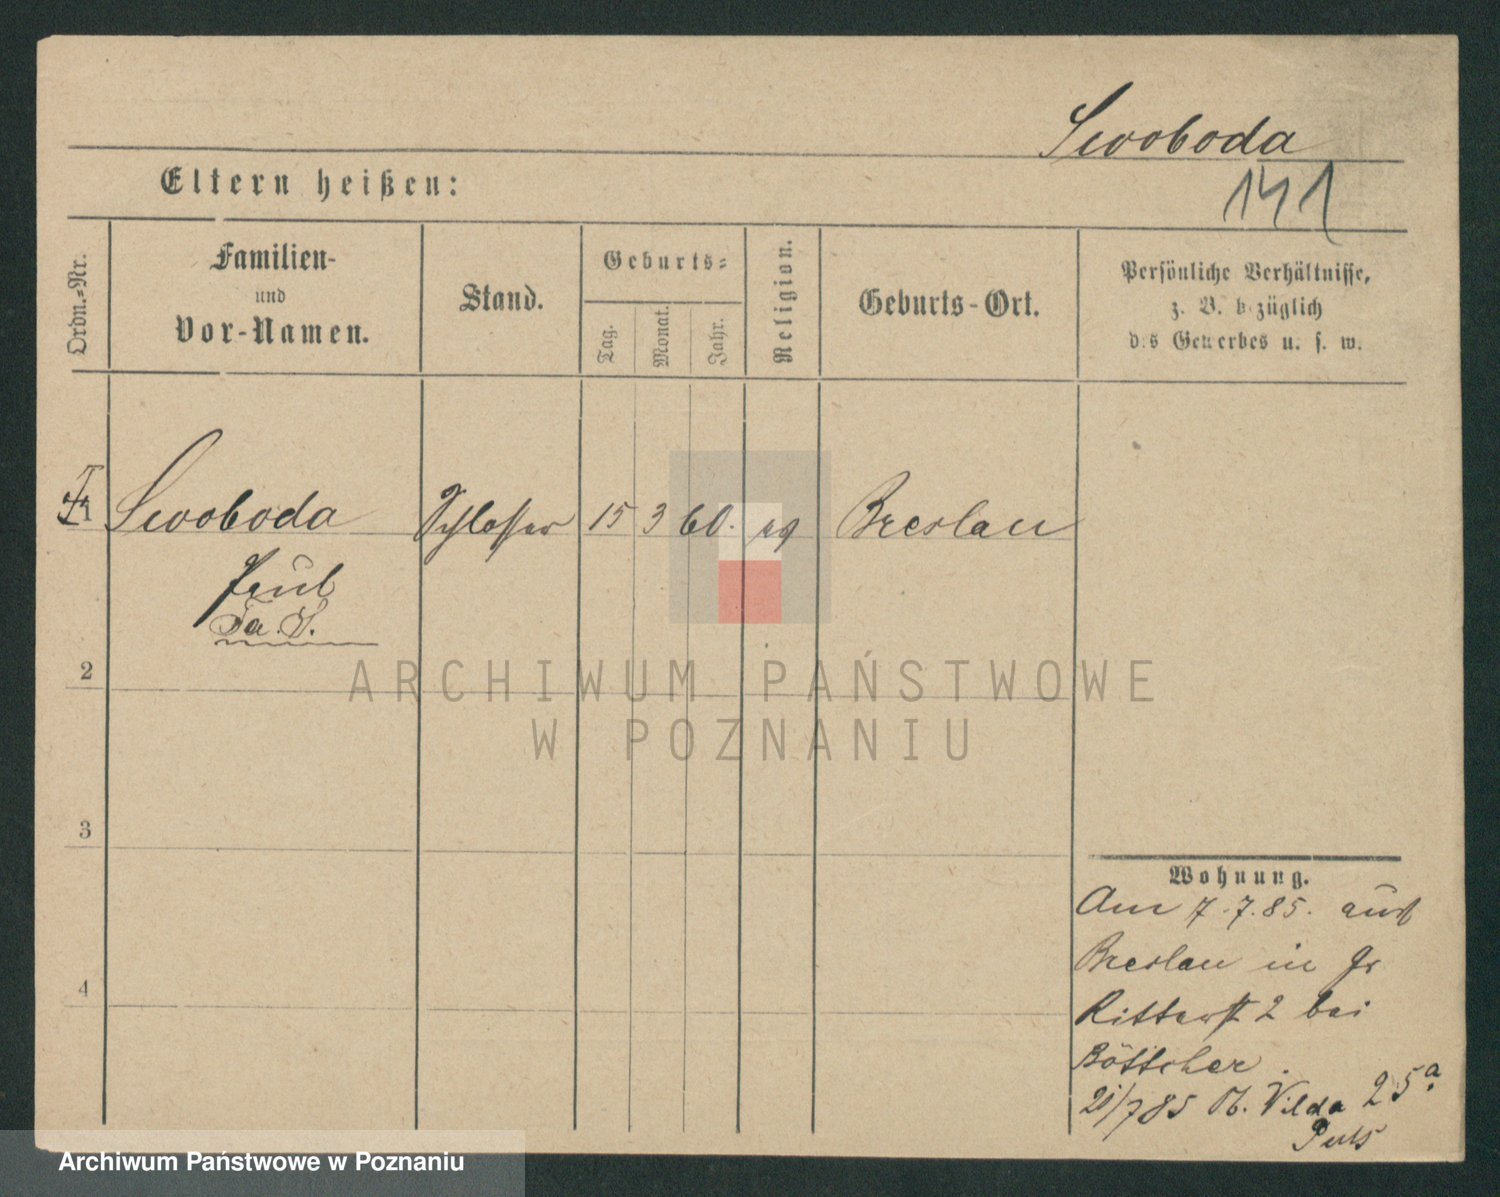 Swoboda
141
Eltern heißen:
Ordn.=Nr.
Familien-
und
Vor-Namen.
Stand.
Geburts=
Tag.
Monat.
Jahr.
Religion.
Geburts-Ort.
Persönliche Verhältnisse,
z. B. bezüglich
des Gewerbes u. s. w.
1 Swoboda Schlosser 15 3 60. Breslau
Paul
2
ARCHIWUM PAŃSTWOWE
W POZNANIU
3
4
Wohnung.
Am 7.7.85. aus
Breslau in Gr
Ritterst 2 bei
Böttcher.
/7 85 Ob. Wilda 25a
Archiwum Państwowe w Poznaniu